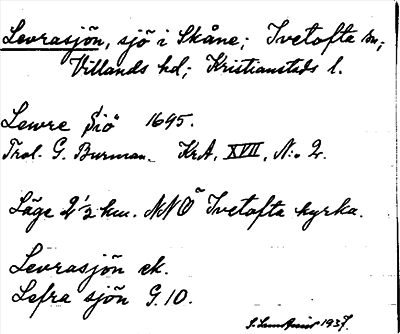 Levrasjön, sjö i Skåne; Ivetofta sn;
Villands hd; Kristianstads l.
Lewre Siö 1695.
Trol. G. Burman. KrA, XVII, N:o 2.
Läge 2 1/2 km. NNO Ivetofta kyrka.
Levrasjön ek.
Lefra sjön G.10.
1937.